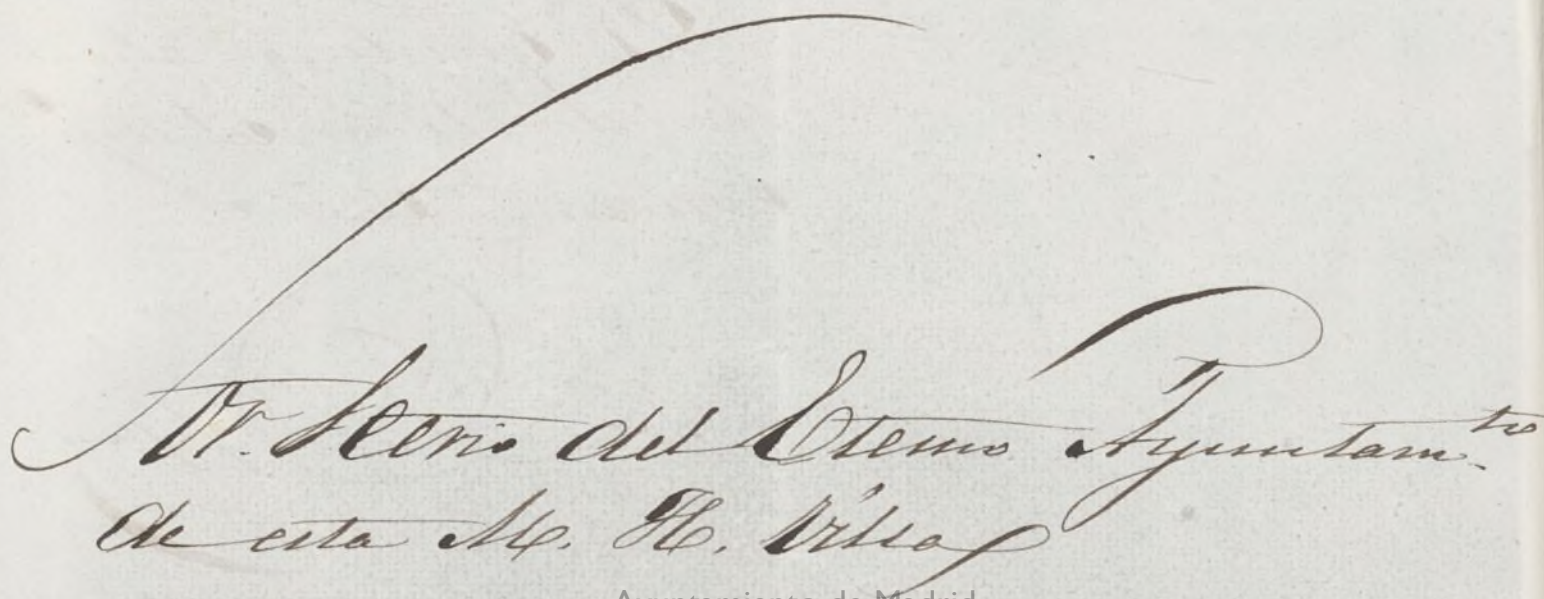 Sr. Scrio del Excmo Ayuntam.to
de esta M. H. Villa
Ayuntamiento de Madrid